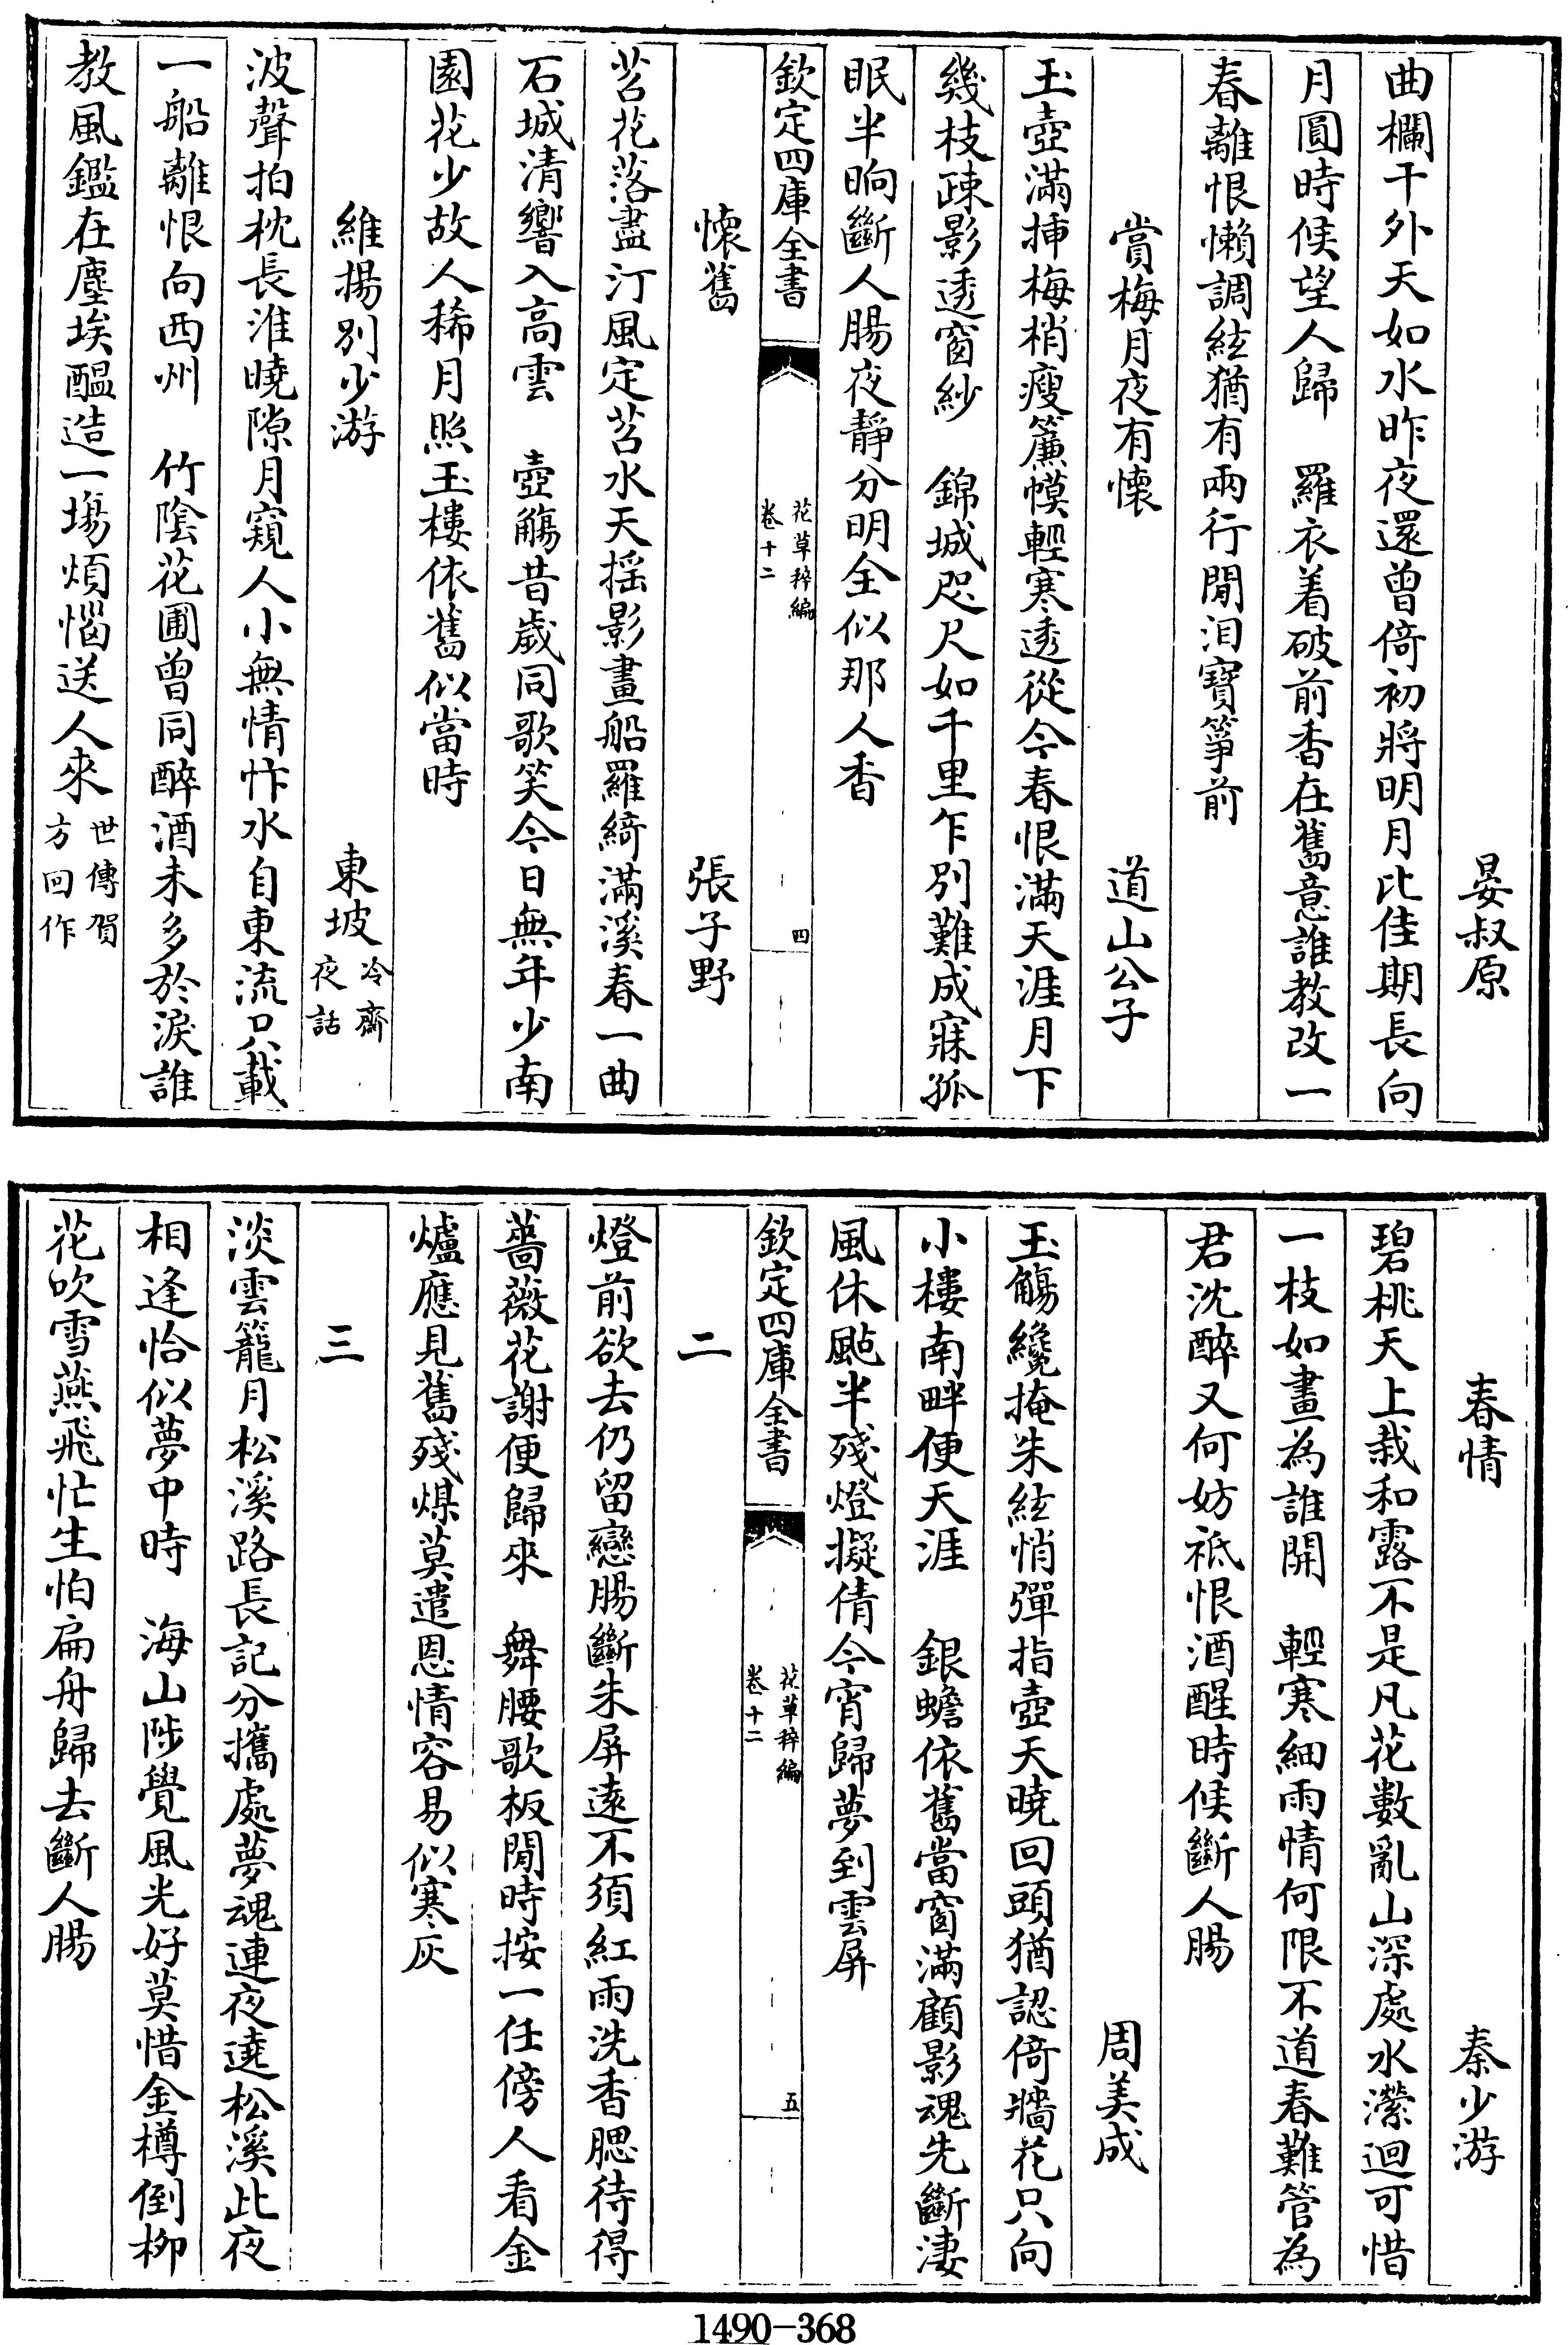 晏叔原
曲欄干外天如水昨夜還曾倚初將明月比佳期長向
月圓時候望人歸　羅衣着破前香在舊意誰教改一
春離恨懶調絃猶有兩行閒泪寳筝前
賞梅月夜有懷　道山公子
玉壺滿揷梅梢瘦簾幙輕寒透從今春恨滿天涯月下
幾枝疎影透窗紗　錦城咫尺如千里乍別難成寐孤
眠半晌斷人腸夜靜分明全似那人香
欽定四庫全書　花草稡編　卷十二　四
懷舊　張子野
苕花落盡汀風定苕水天揺影畫船羅綺滿溪春一曲
石城清響入高雲　壺觴昔歲同歌笑今日無年少南
園花少故人稀月照玉樓依舊似當時
維揚別少游　東坡　冷齋夜話
波聲拍枕長淮曉隙月窺人小無情忭水自東流只載
一船離恨向西州　竹陰花圃曾同醉酒未多於淚誰
教風鑑在塵埃醖造一塲煩惱送人來　世傳賀方回作
春情　秦少游
碧桃天上栽和露不是凡花數亂山深處水瀠迴可惜
一枝如畫為誰開　輕寒細雨情何限不道春難管為
君沈醉又何妨祗恨酒醒時候斷人腸
周美成
玉觴纔掩朱絃悄彈指壺天曉回頭猶認倚牆花只向
小樓南畔便天涯　銀蟾依舊當窗滿顧影魂先斷淒
風休颭半殘燈擬倩今宵歸夢到雲屏
欽定四庫全書　花草稡編　卷十二　五
二
燈前欲去仍留戀腸斷朱屏遠不須紅雨洗香腮待得
薔薇花謝便歸來　舞腰歌板閒時按一任傍人看金
爐應見舊殘煤莫遣恩情容易似寒灰
三
淡雲籠月松溪路長記分攜處夢魂連夜遶松溪此夜
相逢恰似夢中時　海山陟覺風光好莫惜金樽倒柳
花吹雪燕飛忙生怕扁舟歸去斷人腸
1490-368